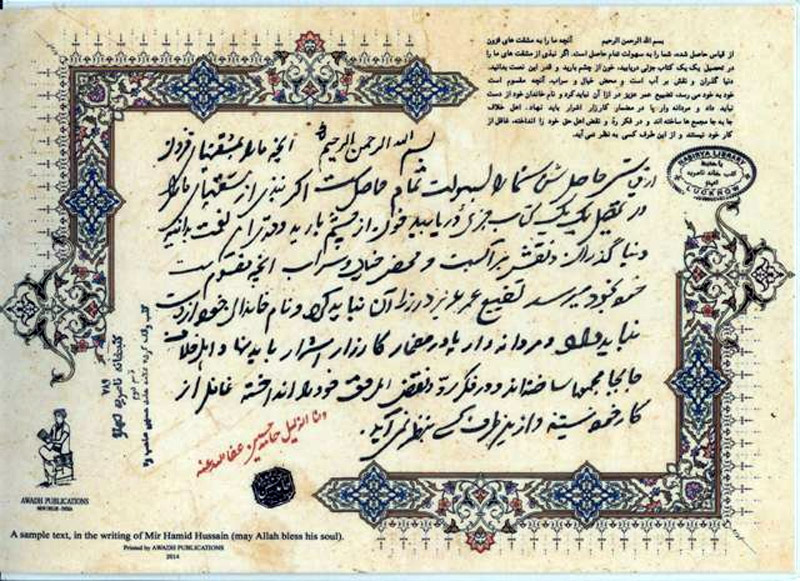 بسم الله الرحمن الرحیم آنچه ما را به مشقت های فزون
از قیاس حاصل شده، شما را به سهولت تمام حاصل است. اگر نبذی از مشقت های ما را
در تحصیل یک یک کتاب جزئی دریابید، خون از چشم بارید و قدر این نعمت بدانید.
دنیا گذران و نقش بر آب است و محض خیال و سراب. آنچه مقسوم است
خود به خود می رسد، تضییع عمر عزیز در ازا آن نباید کرد و نام خاندان خود از دست
نباید داد و مردانه وار پا در مضمار کارزار اشرار باید نهاد. اهل خلاف
جا به جا مجمع ها ساخته اند و در فکر ردّ و نقض اهل حق خود را انداخته، غافل از
کار خود نیستند و از این طرف کسی به نظر نمی آید.
NASIRYA LIBRARY
کتب خانه ناصریه
LUCKNOW
بسم الله الرحمن الرحیم آنچه ما را بمشقتهای فزون از
قیاس حاصل شده شما را بسهولت تمام حاصل است اگر نبذی از مشقتهای ما را
در تحصیل یک یک کتاب جزئی دریابید خون از چشم بارید و قدر این نعمت بدانید
دنیا گذران و نقش بر آبست و محض خیال و سراب آنچه مقسوم است
خود بخود میرسد تضییع عمر عزیز در ازا آن نباید کرد و نام خاندان خود از دست
نباید داد و مردانه وار پا در مضمار کارزار اشرار باید نهاد و اهل خلاف
جابجا مجمعها ساخته اند و در فکر رد و نقض اهل حق خود را انداخته غافل از
کار خود نیستند و ازین طرف کسے بنظر نمی آید
حامد حسین عفا الله عنه
کتبخانه ناصریه لکهنؤ
۷۸۹
AWADH PUBLICATIONS
NEW DELHI - INDIA
A sample text, in the writing of Mir Hamid Hussain (may Allah bless his soul).
Printed by AWADH PUBLICATIONS
2014